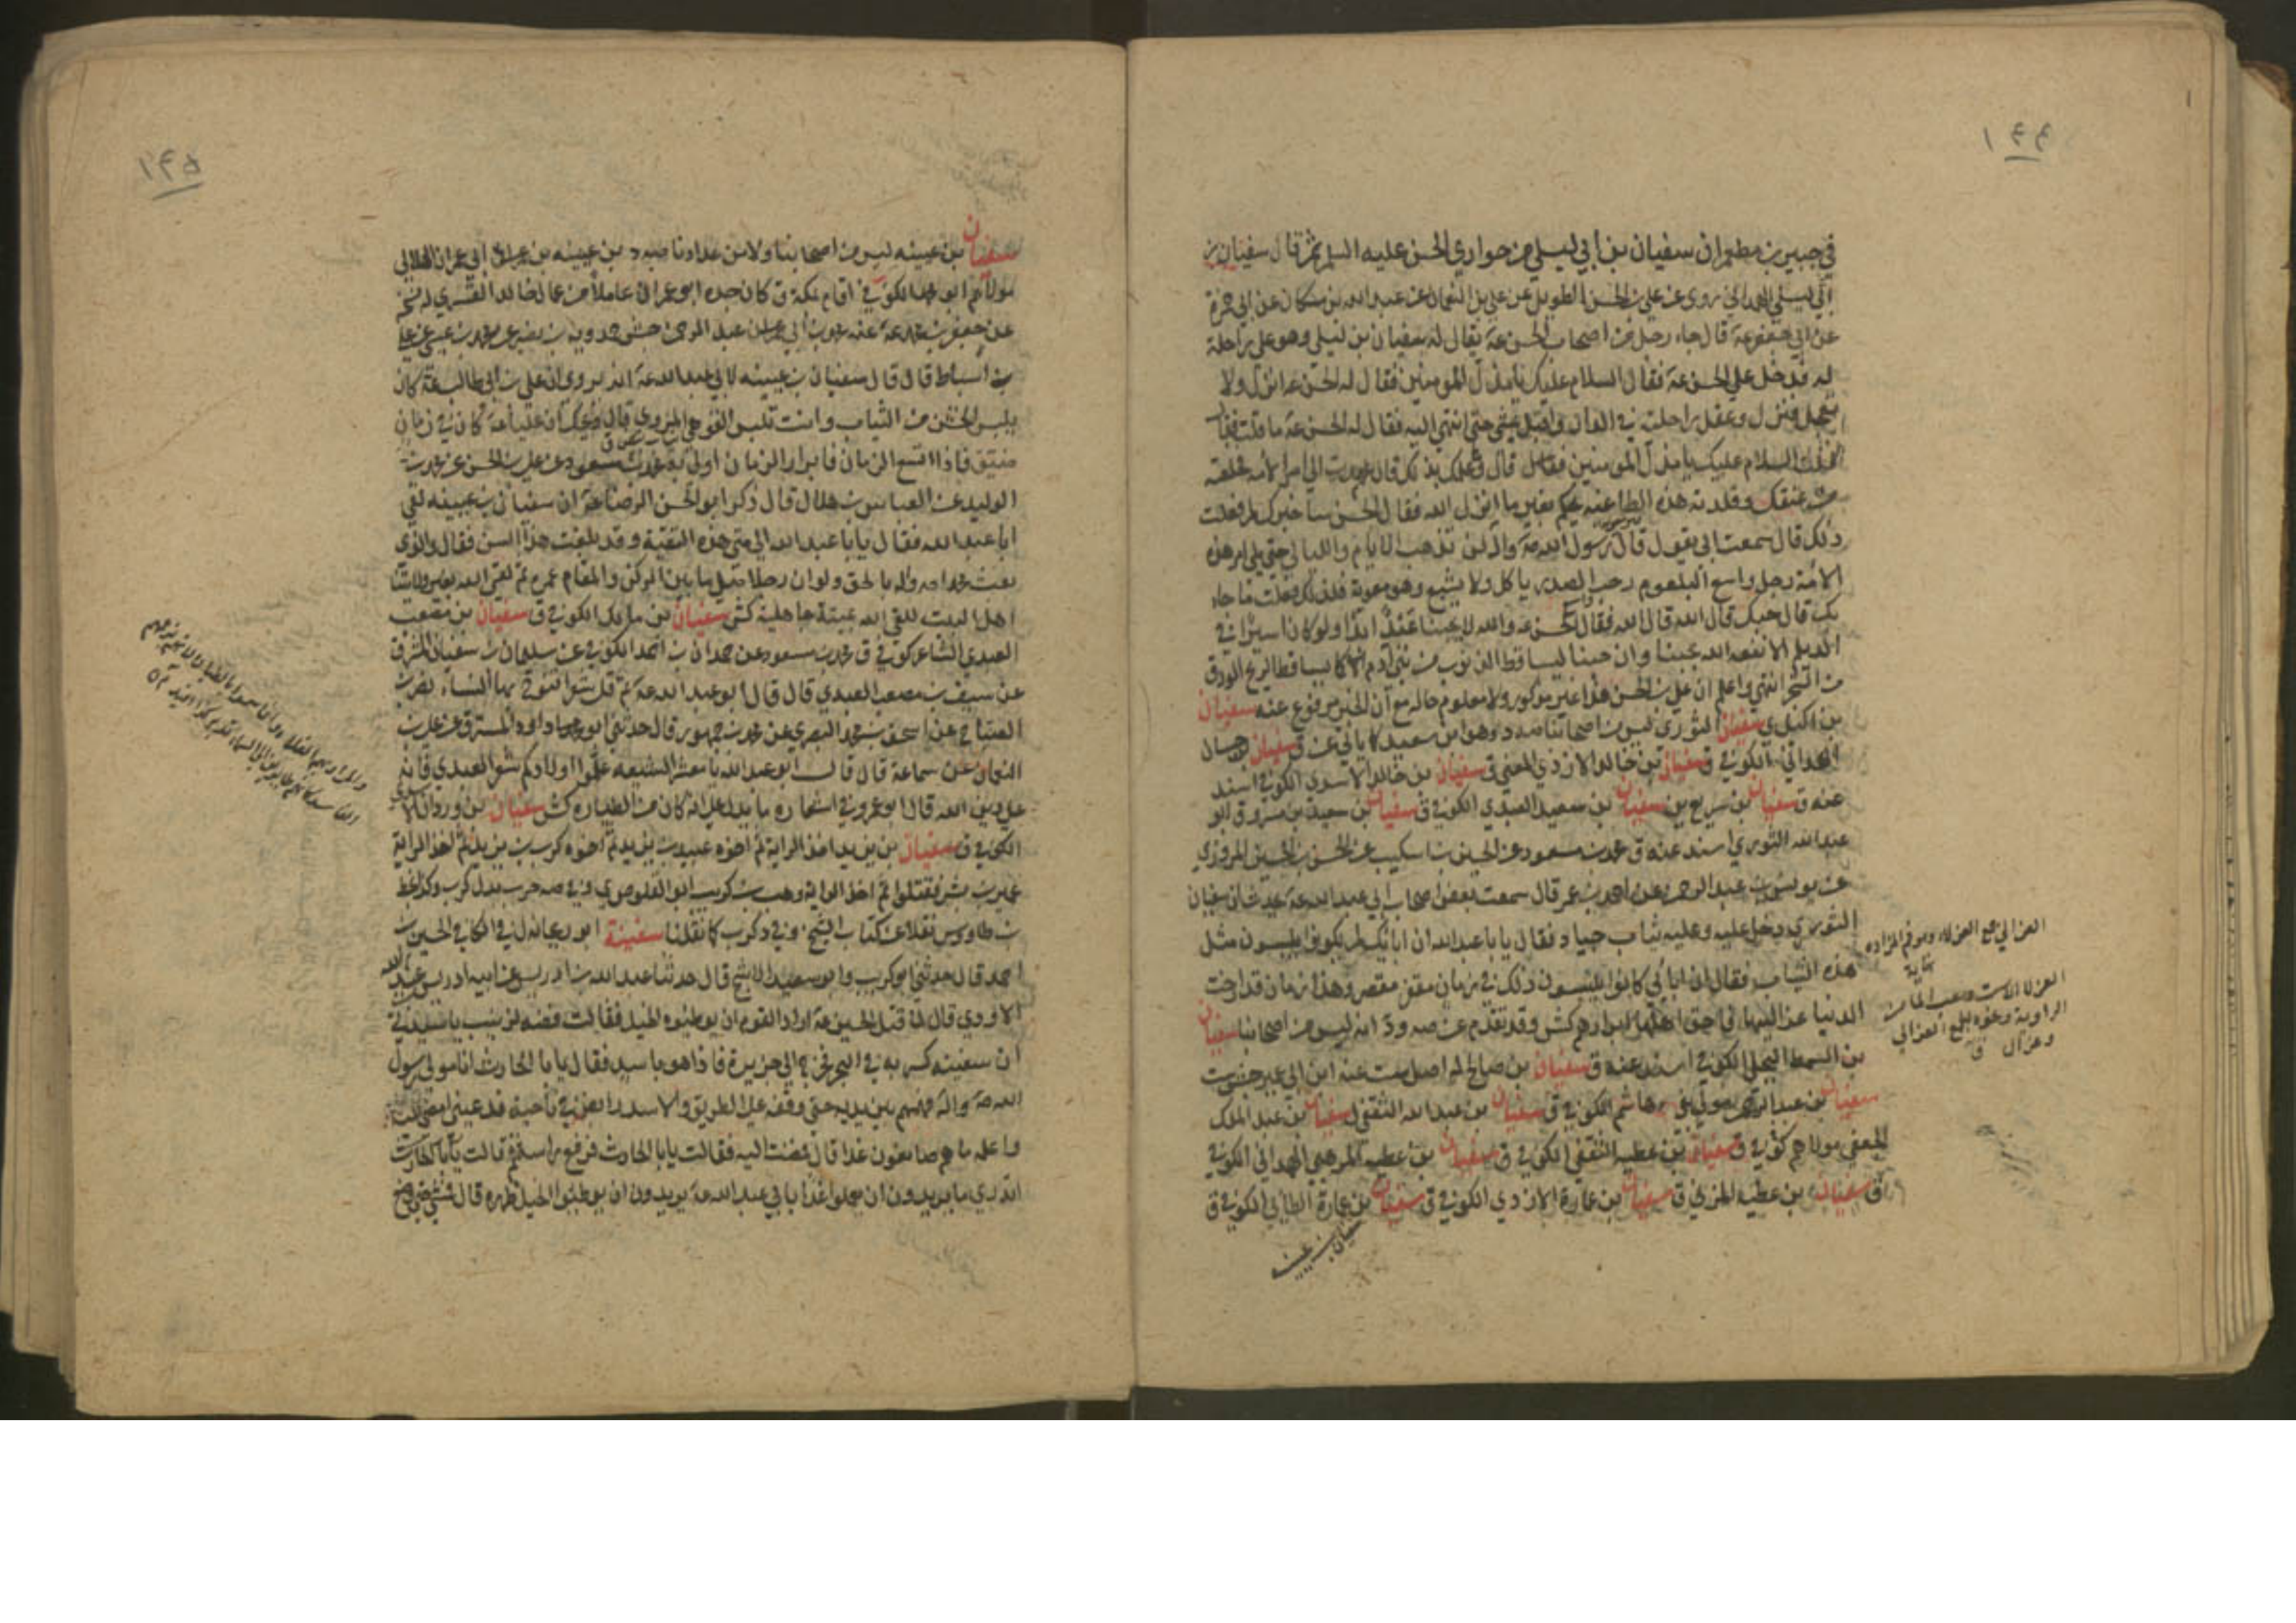 ١٤٤
في جبير بن مطعم ان سفيان بن ابي ليلى من حواري الحسن عليه السلم ثم قال سفيان بن
ابي ليلى الهمداني روى عن علي بن الحسن الطويل عن علي بن النعمان عن عبد الله بن مسكان عن ابي حمزة
عن ابي جعفر عه قال جاء رجل من اصحاب الحسن عه يقال له سفيان بن ليلى وهو على راحلة
له فدخل على الحسن عه فقال السلام عليك يا مذل المومنين فقال له الحسن عه انزل ولا
تعجل فنزل وعقل راحلته في الدار واقبل يمشي حتى انتهى اليه فقال له الحسن عه ما قلت قال
قلت السلام عليك يا مذل المومنين فقال وما علمك بذلك قال عمدت الى امر الامة فخلعته
من عنقك وقلدته هذه الطاغيه يحكم بغير ما انزل الله فقال الحسن ساخبرك لم فعلت
ذلك قال سمعت ابي يقول قال رسول الله صه واله لن تذهب الايام والليالي حتى يلي امر هذه
الامة رجل واسع البلعوم رحب الصدر ياكل ولا يشبع وهو معوية فلذلك فعلت ما جاء
بك قال حبك قال الله قال الله فقال الحسن عه والله لا يحبنا عبد ابدا ولو كان اسيرا في
الديلم الا نفعه الله بحبنا وان حبنا ليساقط الذنوب من بني ادم كما يساقط الريح الورق
من الشجر انتهى واعلم ان علي بن الحسن هذا غير مذكور ولا معلوم حاله مع ان الخبر مرفوع عنه سفيان
بن اكيل ي سفيان الثوري ليس من اصحابنا صه د وهو ابن سعيد كما ياتي عن ق سفيان
الهمداني الكوفي ق سفيان بن خالد الازدي المعني ق سفيان بن خالد الاسدي الكوفي اسند
عنه ق سفيان بن سريع ين سفيان بن سعيد العبدي الكوفي ق سفيان بن سعيد بن مسروق ابو
عبد الله الثوري اسند عنه ق محمد بن مسعود عن الحسين بن اسكيب عن الحسن بن الحسين المروزي
عن يونس بن عبد الرحمن عن احمد بن عمر قال سمعت بعض اصحاب ابي عبد الله عه يحدث ان سفيان
الثوري دخل عليه وعليه ثياب جياد فقال يا با عبد الله ان اباءك لم يكونوا يلبسون مثل
هذه الثياب فقال ان ابائي كانوا يلبسون ذلك في زمان مقفر مقصر وهذا زمان قد ارخت
الدنيا عزاليها فاحق اهلها ابرارهم كش وقد تقدم عن صه ود انه ليس من اصحابنا سفيان
بن السمط البجلي الكوفي اسند عنه ق سفيان بن صالح له اصل ست عنه ابن ابي عمير جش ست
سفيان بن عبد الرحمن مولى بني هاشم الكوفي ق سفيان بن عبد الله الثقفي ل سفيان بن عبد الملك
الجعفي مولاهم كوفي ق سفيان بن عطيه الثقفي الكوفي ق سفيان بن عطيه المرهبي الهمداني الكوفي
ق سفيان بن عطيه المزني ق سفيان بن عمارة الازدي الكوفي ق سفيان بن عمارة الطائي الكوفي ق
سفيان بن عيينه
العزالي جمع العزلاء وهو فم المزاده
نهاية
العزلا الاست ومصب الماء من
الراوية ونحوه الجمع العزالي
وعزال ق
١٤٥
سفيان بن عيينه ليس من اصحابنا ولا من عدادنا صه د بن عيينه بن ابي عمران الهلالي
مولاهم ابو محمد الكوفي اقام بمكة ق كان جده ابو عمران عاملا من عمال خالد القسري له نسخه
عن جعفر بن محمد عه
بن اسباط قال قال سفيان بن عيينه لابي عبد الله عه انه يروى ان علي بن ابي طالب عه كان
يلبس الخشن من الثياب وانت تلبس القوهي المروي قال ويحك ان عليا عه كان في زمان
ضيق فاذا اتسع الزمان فابرار الزمان اولى به محمد بن مسعود عن علي بن الحسن عن محمد بن
الوليد عن العباس بن هلال قال ذكر ابو الحسن الرضا عه ان سفيان بن عيينه لقي
ابا عبد الله فقال يا با عبد الله الى متى هذه التقية وقد بلغت هذا السن فقال والذي
بعث محمدا صه واله بالحق لو ان رجلا صلى ما بين الركن والمقام عمره ثم لقي الله بغير ولايتنا
اهل البيت للقي الله بميتة جاهلية كش سفيان بن مالك الكوفي ق سفيان بن مصعب
العبدي الشاعر كوفي ق محمد بن مسعود عن حمدان بن احمد الكوفي عن سليمان بن سفيان المسترق
عن سيف بن مصعب العبدي قال قال ابو عبد الله عه قل شعرا تنوح بها النساء نصر بن
الصباح عن اسحق بن محمد البصري عن محمد بن جمهور قال حدثني ابو داود المسترق عن علي بن
النعمان عن سماعة قال قال ابو عبد الله يا معشر الشيعه علموا اولادكم شعر العبدي فانه
على دين الله قال ابو عمرو في اشعاره ما يدل على انه كان من الطيارة كش سفيان بن وردان الاسدي
الكوفي ق سفيان بن يزيد اخذ الراية ثم اخوه عبيد بن يزيد ثم اخوه كرب بن يزيد ثم اخذ الراية
عمير بن بشر فقتلوا ثم اخذ الراية وهب بن كريب ابو القلوص ي وفي صه حرب بدل كرب وكذا بخط
بن طاووس نقلا عن كتاب الشيخ وفي د كرب كما نقلنا سفينة ابو ريحانه ل في الكافي الحسين بن
احمد قال حدثني ابو كريب وابو سعيد الاشج قال حدثنا عبد الله بن ادريس عن ابيه ادريس بن عبد الله
الاودي قال لما قتل الحسين عه اراد القوم ان يوطئوه الخيل فقالت فضه لزينب يا سيدتي
ان سفينه كسر به في البحر فخرج الى جزيرة فاذا هو باسد فقال يا با الحارث انا مولى رسول
الله صه واله فهمهم بين يديه حتى وقفه على الطريق والاسد رابض في ناحية فدعيني امضي اليه
واعلمه ما هم صانعون غدا قال فمضت اليه فقالت يا با الحارث فرفع راسه ثم قالت يا با الحارث
اتدري ما يريدون ان يعملوا غدا بابي عبد الله عه يريدون ان يوطئوا الخيل ظهره قال فمشى حتى وضع